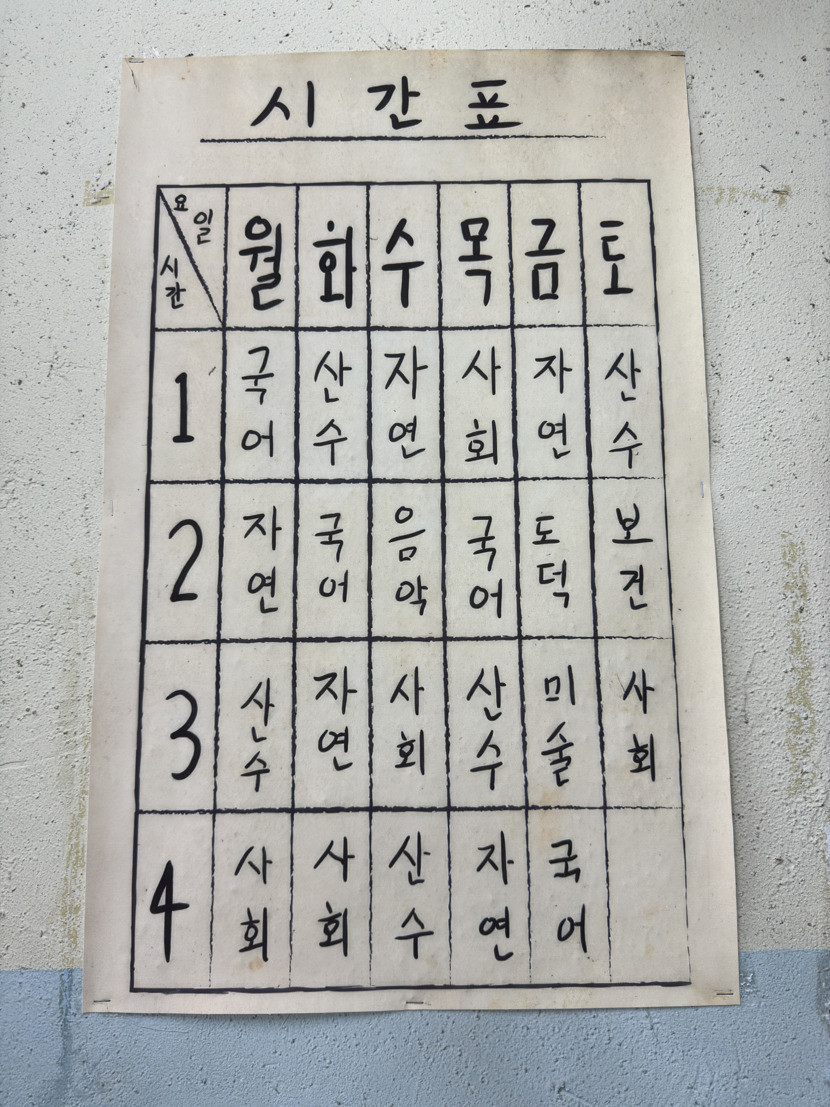 시간표
요일
시간
월 화 수 목 금 토
1 국어 산수 자연 사회 자연 산수
2 자연 국어 음악 국어 도덕 보건
3 산수 자연 사회 산수 미술 사회
4 사회 사회 산수 자연 국어